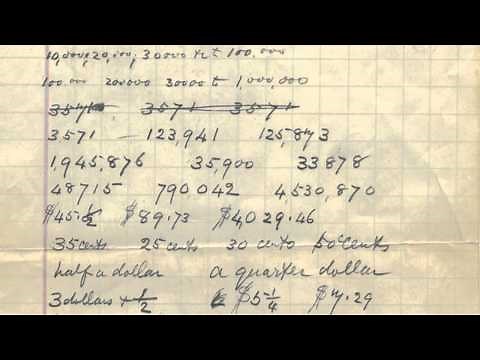 10,000, 20,000, 30000 to 100.000
100.000 200000 30000 to 1,000,000
3571 3571 3571
3571 123,941 125,873
1,945,876 35,900 33878
48715 790042 4,530,870
$45.½ $89.73 $4,029.46
35 cents 25 cents 30 cents 50 cents
half a dollar a quarter dollar
3 dollars + ½ $5 ¼ $7.29